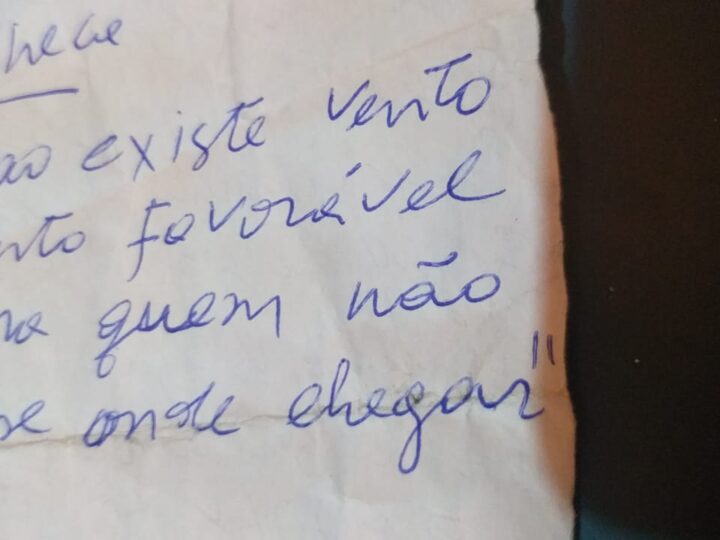 hece
ao existe vento
nto favorável
ra quem não
be onde chegar"